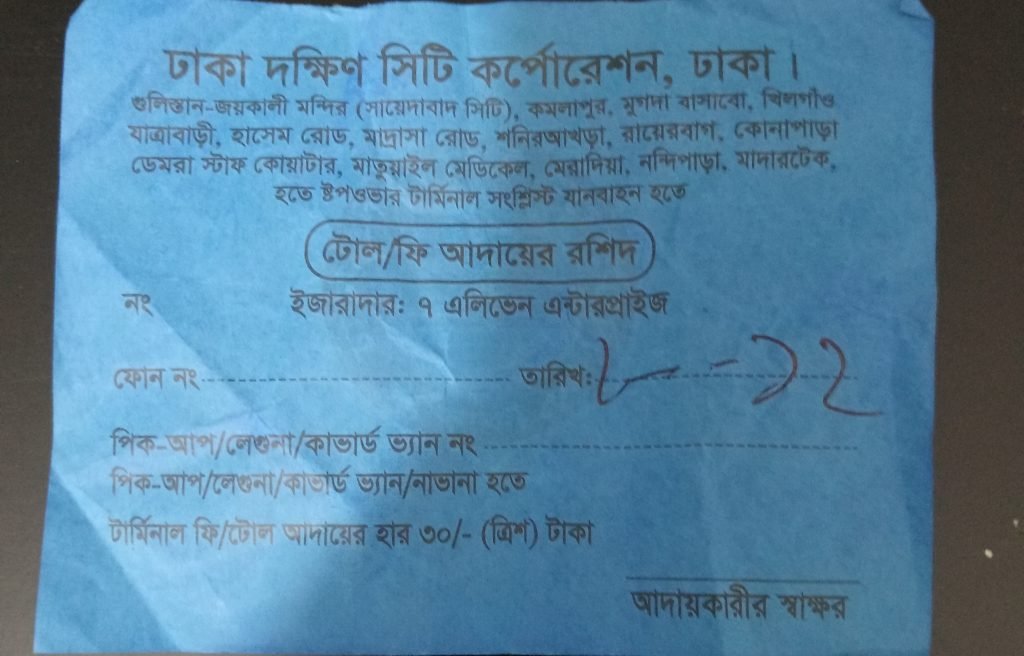 ঢাকা দক্ষিণ সিটি কর্পোরেশন, ঢাকা।
গুলিস্তান-জয়কালী মন্দির (সায়েদাবাদ সিটি), কমলাপুর, মুগদা বাসাবো, খিলগাঁও
যাত্রাবাড়ী, হাসেম রোড, মাদ্রাসা রোড, শনিরআখড়া, রায়েরবাগ, কোনাপাড়া
ডেমরা স্টাফ কোয়াটার, মাতুয়াইল মেডিকেল, মেরাদিয়া, নন্দিপাড়া, মাদারটেক,
হতে ষ্টপওভার টার্মিনাল সংশ্লিস্ট যানবাহন হতে
টোল/ফি আদায়ের রশিদ
নং
ইজারাদার: ৭ এলিভেন এন্টারপ্রাইজ
ফোন নং
তারিখ:
পিক-আপ/লেগুনা/কাভার্ড ভ্যান নং
পিক-আপ/লেগুনা/কাভার্ড ভ্যান/নাভানা হতে
টার্মিনাল ফি/টোল আদায়ের হার ৩০/- (ত্রিশ) টাকা
আদায়কারীর স্বাক্ষর